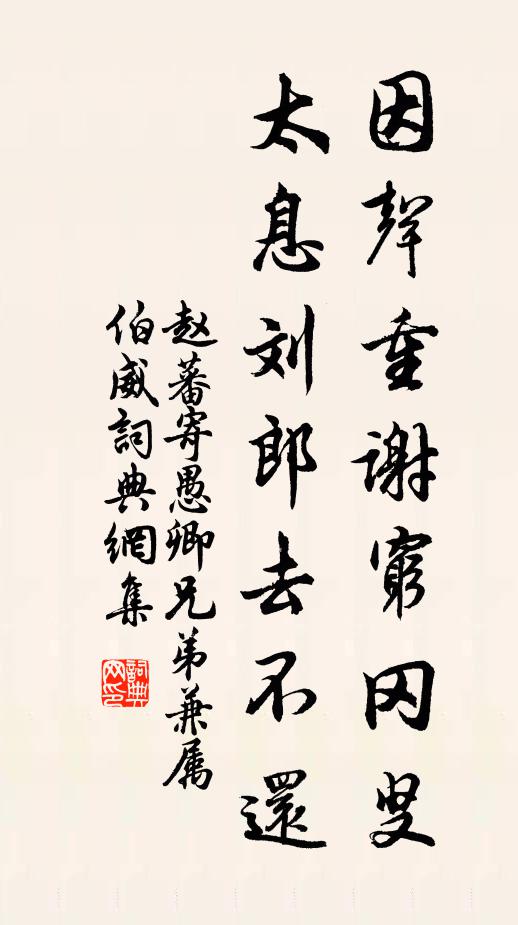 因聲重謝窮冈叟
太息刘郎去不還
赵蕃寄愚卿兄弟兼属
伯威詞典網集
詞典網印